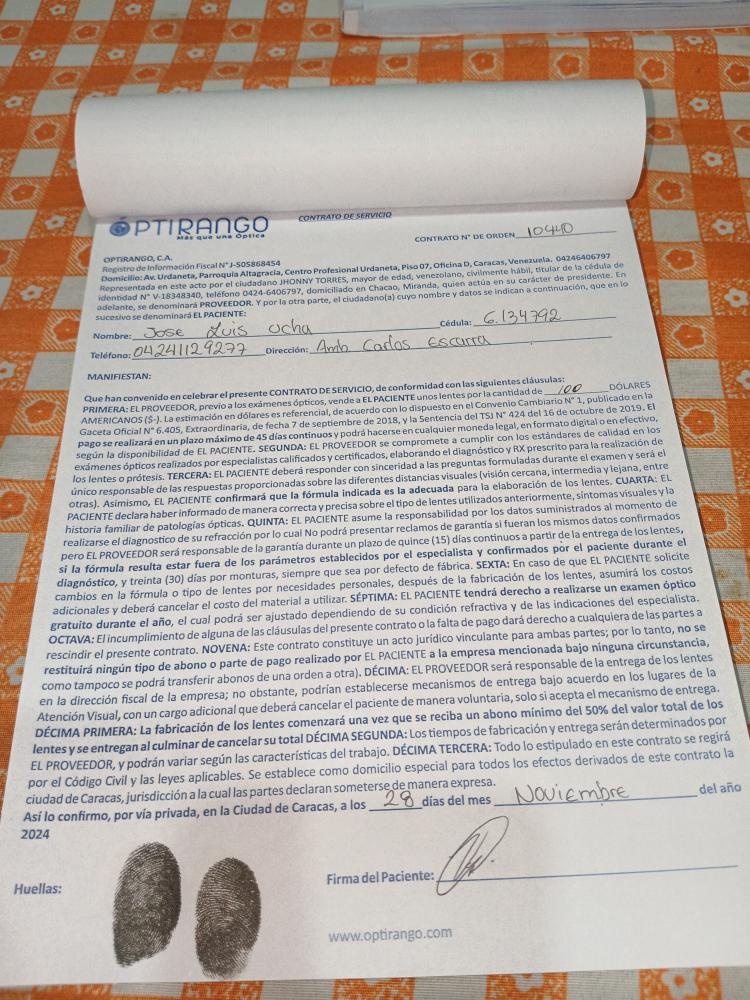 OPTIRANGO
Más que una Óptica
CONTRATO DE SERVICIO
CONTRATO N° DE ORDEN 10440
OPTIRANGO, C.A.
Registro de Información Fiscal N° J-505868454
Domicilio: Av. Urdaneta, Parroquia Altagracia, Centro Profesional Urdaneta, Piso 07, Oficina D, Caracas, Venezuela. 04246406797
Representada en este acto por el ciudadano JHONNY TORRES, mayor de edad, venezolano, civilmente hábil, titular de la cédula de
identidad N° V-18348340, teléfono 0424-6406797, domiciliado en Chacao, Miranda, quien actúa en su carácter de presidente. En
adelante, se denominará PROVEEDOR. Y por la otra parte, el ciudadano(a) cuyo nombre y datos se indican a continuación, que en lo
sucesivo se denominará EL PACIENTE:
Nombre: Jose Luis Ucha Cédula: 6.134792
Teléfono: 04241129277 Dirección: Amb. Carlos Escarra
MANIFIESTAN:
Que han convenido en celebrar el presente CONTRATO DE SERVICIO, de conformidad con las siguientes cláusulas:
PRIMERA: EL PROVEEDOR, previo a los exámenes ópticos, vende a EL PACIENTE unos lentes por la cantidad de 100 DÓLARES
AMERICANOS ($-). La estimación en dólares es referencial, de acuerdo con lo dispuesto en el Convenio Cambiario N° 1, publicado en la
Gaceta Oficial N° 6.405, Extraordinaria, de fecha 7 de septiembre de 2018, y la Sentencia del TSJ N° 424 del 16 de octubre de 2019. El
pago se realizará en un plazo máximo de 45 días continuos y podrá hacerse en cualquier moneda legal, en formato digital o en efectivo,
según la disponibilidad de EL PACIENTE. SEGUNDA: EL PROVEEDOR se compromete a cumplir con los estándares de calidad en los
exámenes ópticos realizados por especialistas calificados y certificados, elaborando el diagnóstico y RX prescrito para la realización de
los lentes o prótesis. TERCERA: EL PACIENTE deberá responder con sinceridad a las preguntas formuladas durante el examen y será el
único responsable de las respuestas proporcionadas sobre las diferentes distancias visuales (visión cercana, intermedia y lejana, entre
otras). Asimismo, EL PACIENTE confirmará que la fórmula indicada es la adecuada para la elaboración de los lentes. CUARTA: EL
PACIENTE declara haber informado de manera correcta y precisa sobre el tipo de lentes utilizados anteriormente, síntomas visuales y la
historia familiar de patologías ópticas. QUINTA: EL PACIENTE asume la responsabilidad por los datos suministrados al momento de
realizarse el diagnostico de su refracción por lo cual No podrá presentar reclamos de garantía si fueran los mismos datos confirmados
pero EL PROVEEDOR será responsable de la garantía durante un plazo de quince (15) días continuos a partir de la entrega de los lentes,
si la fórmula resulta estar fuera de los parámetros establecidos por el especialista y confirmados por el paciente durante el
diagnóstico, y treinta (30) días por monturas, siempre que sea por defecto de fábrica. SEXTA: En caso de que EL PACIENTE solicite
cambios en la fórmula o tipo de lentes por necesidades personales, después de la fabricación de los lentes, asumirá los costos
adicionales y deberá cancelar el costo del material a utilizar. SÉPTIMA: EL PACIENTE tendrá derecho a realizarse un examen óptico
gratuito durante el año, el cual podrá ser ajustado dependiendo de su condición refractiva y de las indicaciones del especialista.
OCTAVA: El incumplimiento de alguna de las cláusulas del presente contrato o la falta de pago dará derecho a cualquiera de las partes a
rescindir el presente contrato. NOVENA: Este contrato constituye un acto jurídico vinculante para ambas partes; por lo tanto, no se
restituirá ningún tipo de abono o parte de pago realizado por EL PACIENTE a la empresa mencionada bajo ninguna circunstancia,
como tampoco se podrá transferir abonos de una orden a otra). DÉCIMA: EL PROVEEDOR será responsable de la entrega de los lentes
en la dirección fiscal de la empresa; no obstante, podrían establecerse mecanismos de entrega bajo acuerdo en los lugares de la
Atención Visual, con un cargo adicional que deberá cancelar el paciente de manera voluntaria, solo si acepta el mecanismo de entrega.
DÉCIMA PRIMERA: La fabricación de los lentes comenzará una vez que se reciba un abono mínimo del 50% del valor total de los
lentes y se entregan al culminar de cancelar su total DÉCIMA SEGUNDA: Los tiempos de fabricación y entrega serán determinados por
EL PROVEEDOR, y podrán variar según las características del trabajo. DÉCIMA TERCERA: Todo lo estipulado en este contrato se regirá
por el Código Civil y las leyes aplicables. Se establece como domicilio especial para todos los efectos derivados de este contrato la
ciudad de Caracas, jurisdicción a la cual las partes declaran someterse de manera expresa.
Así lo confirmo, por vía privada, en la Ciudad de Caracas, a los 28 días del mes Noviembre del año
2024
Huellas:
Firma del Paciente:
www.optirango.com